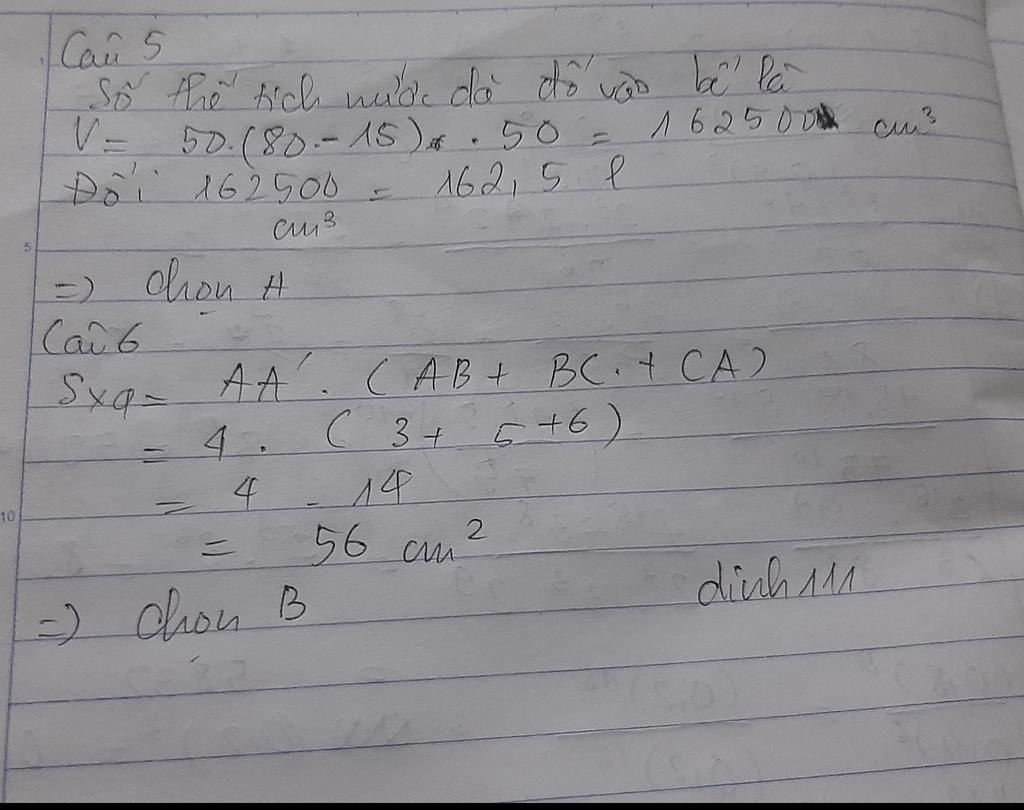 Câu 5
Số thể tích nước đã đổ vào bể là
V = 50.(80-15) . 50 = 162500 cm³
Đổi 162500 = 162,5 l
cm³
=) Chọn A
Câu 6
Sxq = AA' . (AB + BC + CA)
= 4 . (3 + 5 + 6)
= 4 . 14
= 56 cm²
=) Chọn B
dinh111
5
10